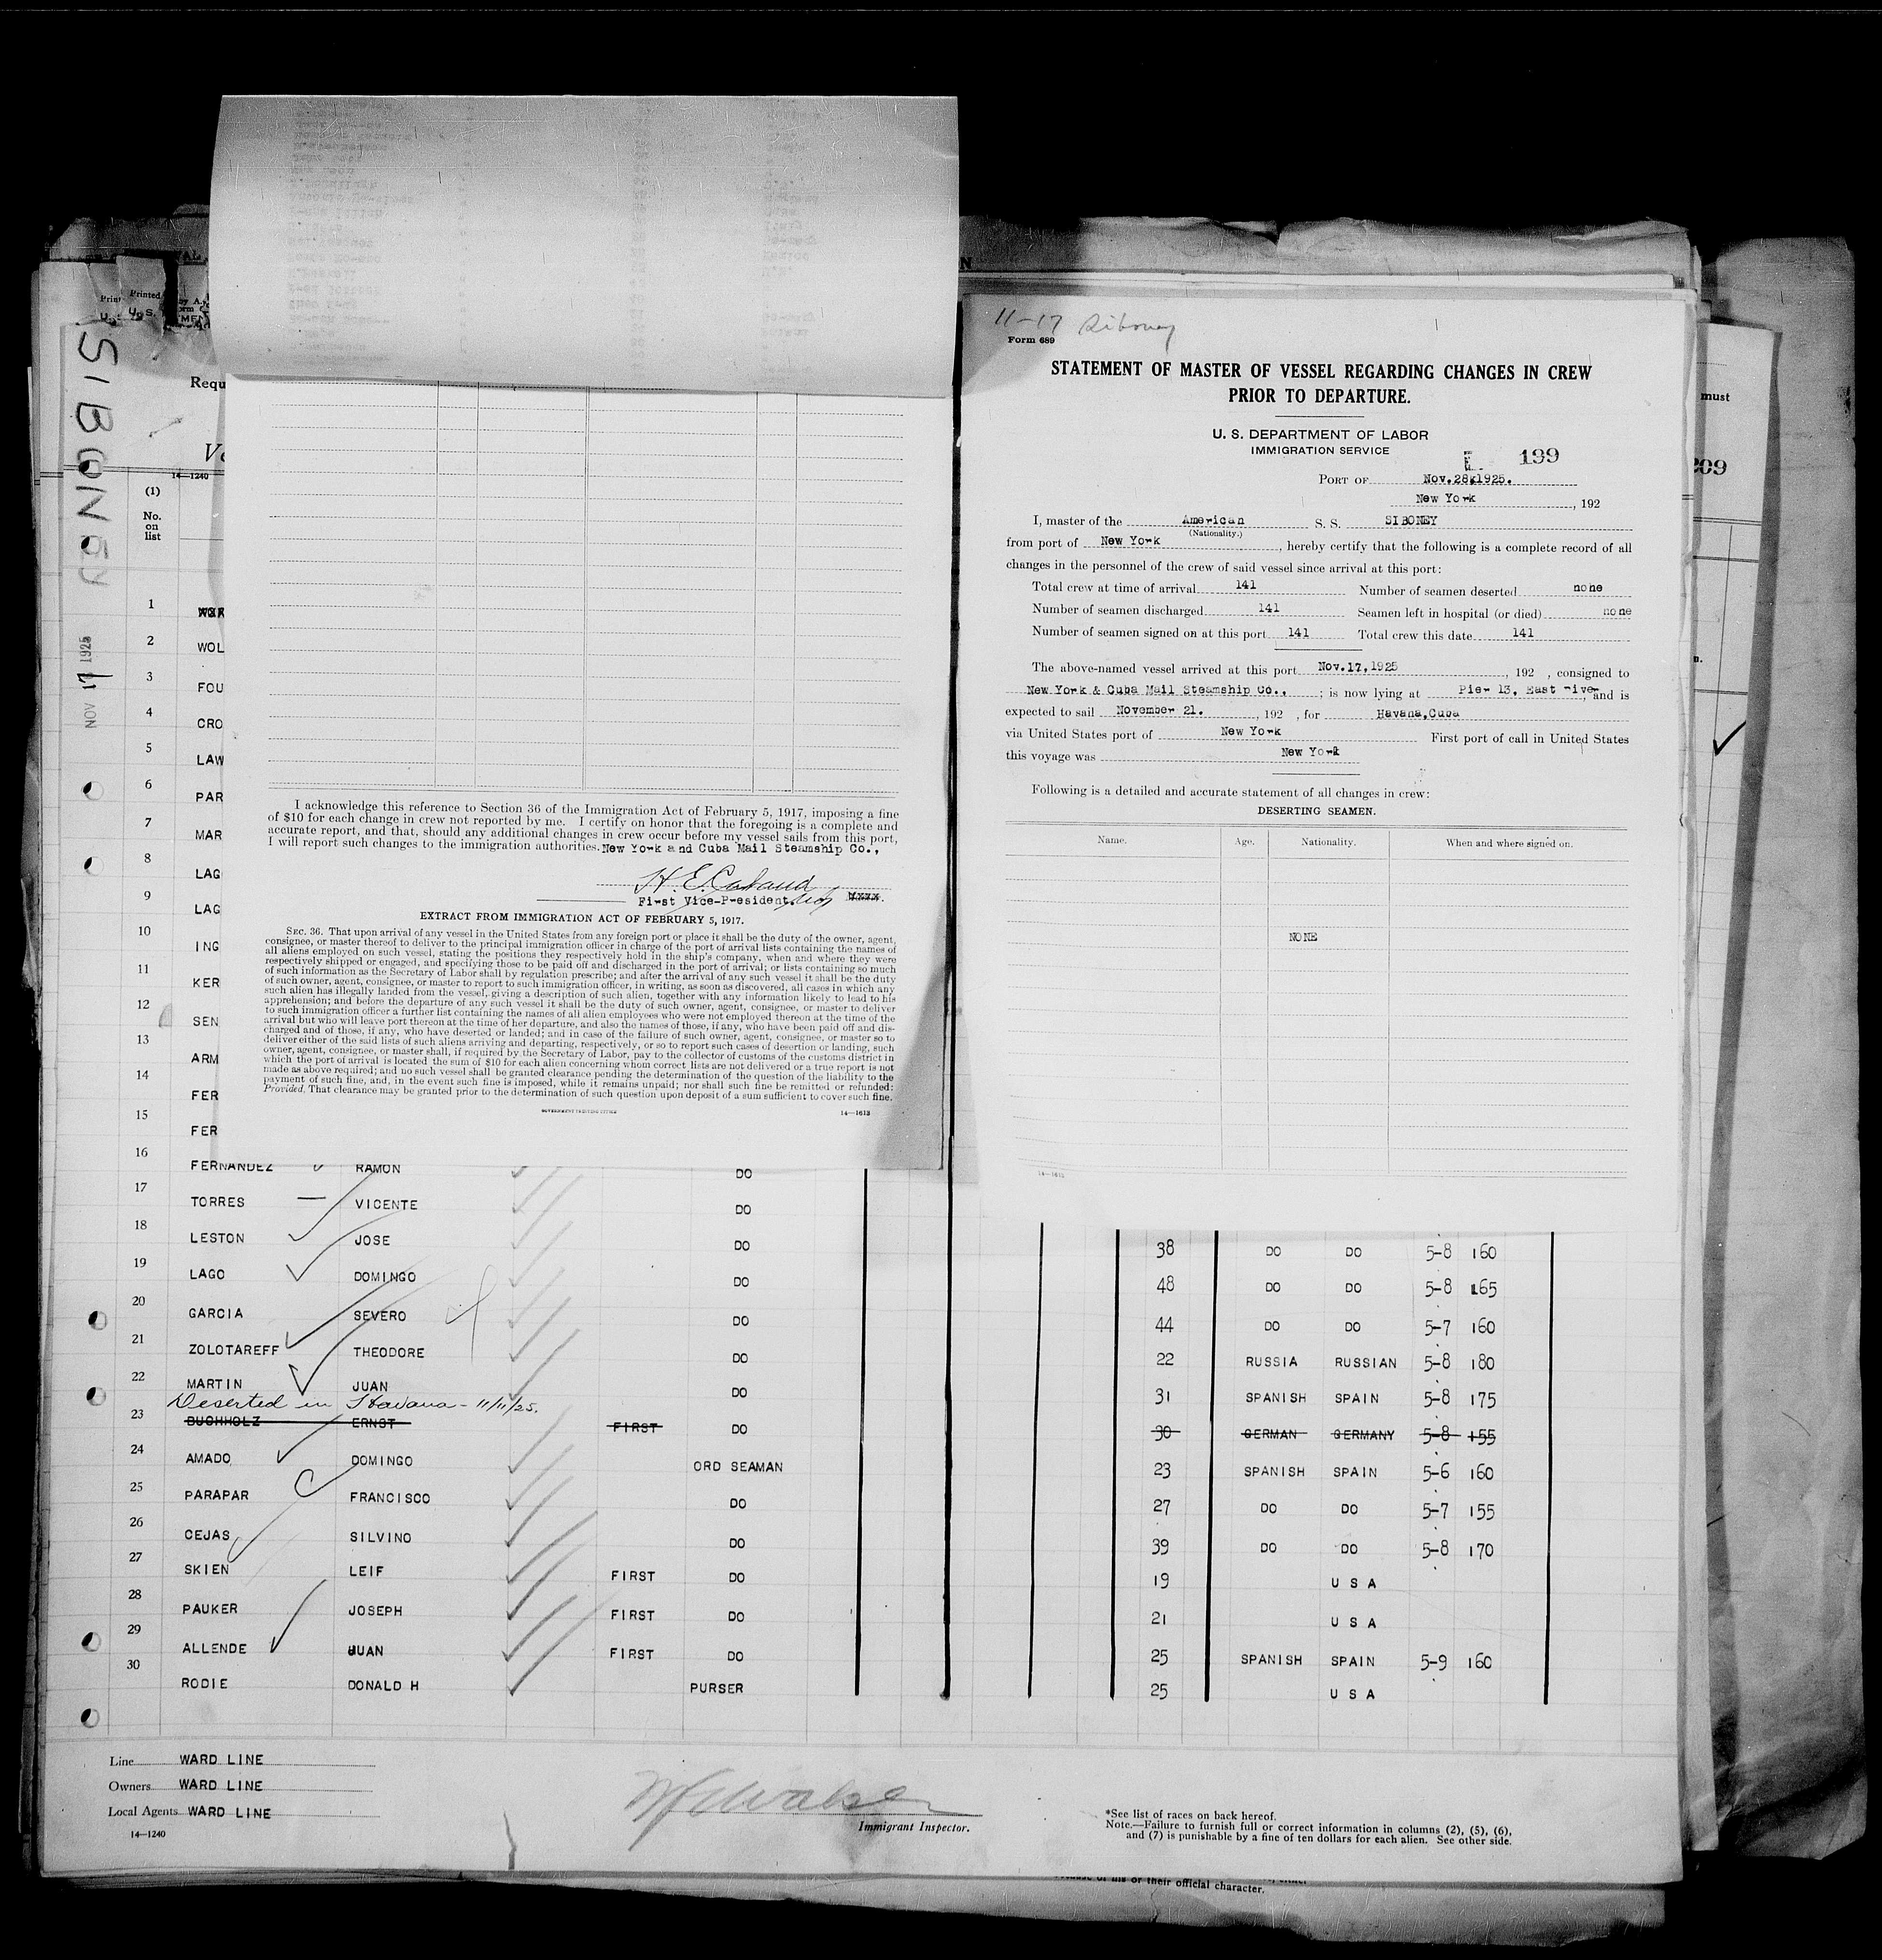 11-17 Siboney
Form 689
STATEMENT OF MASTER OF VESSEL REGARDING CHANGES IN CREW
PRIOR TO DEPARTURE.
U. S. DEPARTMENT OF LABOR
IMMIGRATION SERVICE
199
PORT OF Nov.28,1925.
New York, 192
I, master of the American S. S. SIBONEY
(Nationality.)
from port of New York, hereby certify that the following is a complete record of all
changes in the personnel of the crew of said vessel since arrival at this port:
Total crew at time of arrival 141 Number of seamen deserted none
Number of seamen discharged 141 Seamen left in hospital (or died) none
Number of seamen signed on at this port 141 Total crew this date 141
The above-named vessel arrived at this port Nov.17,1925, 192 , consigned to
New York & Cuba Mail Steamship Co., ; is now lying at Pier 13, East River and is
expected to sail November 21. , 192 , for Havana,Cuba
via United States port of New York First port of call in United States
this voyage was New York
Following is a detailed and accurate statement of all changes in crew:
DESERTING SEAMEN.
Name. Age. Nationality. When and where signed on.
NONE
I acknowledge this reference to Section 36 of the Immigration Act of February 5, 1917, imposing a fine
of $10 for each change in crew not reported by me. I certify on honor that the foregoing is a complete and
accurate report, and that, should any additional changes in crew occur before my vessel sails from this port,
I will report such changes to the immigration authorities. New York and Cuba Mail Steamship Co.,
H. E. Cabaud
First Vice-President.
EXTRACT FROM IMMIGRATION ACT OF FEBRUARY 5, 1917.
SEC. 36. That upon arrival of any vessel in the United States from any foreign port or place it shall be the duty of the owner, agent,
consignee, or master thereof to deliver to the principal immigration officer in charge of the port of arrival lists containing the names of
all aliens employed on such vessel, stating the positions they respectively hold in the ship's company, when and where they were
respectively shipped or engaged, and specifying those to be paid off and discharged in the port of arrival; or lists containing so much
of such information as the Secretary of Labor shall by regulation prescribe; and after the arrival of any such vessel it shall be the duty
of such owner, agent, consignee, or master to report to such immigration officer, in writing, as soon as discovered, all cases in which any
such alien has illegally landed from the vessel, giving a description of such alien, together with any information likely to lead to his
apprehension; and before the departure of any such vessel it shall be the duty of such owner, agent, consignee, or master to deliver
to such immigration officer a further list containing the names of all alien employees who were not employed thereon at the time of the
arrival but who will leave port thereon at the time of her departure, and also the names of those, if any, who have been paid off and dis-
charged and of those, if any, who have deserted or landed; and in case of the failure of such owner, agent, consignee, or master so to
deliver either of the said lists of such aliens arriving and departing, respectively, or so to report such cases of desertion or landing, such
owner, agent, consignee, or master shall, if required by the Secretary of Labor, pay to the collector of customs of the customs district in
which the port of arrival is located the sum of $10 for each alien concerning whom correct lists are not delivered or a true report is not
made as above required; and no such vessel shall be granted clearance pending the determination of the question of the liability to the
payment of such fine, and, in the event such fine is imposed, while it remains unpaid; nor shall such fine be remitted or refunded:
Provided, That clearance may be granted prior to the determination of such question upon deposit of a sum sufficient to cover such fine.
GOVERNMENT PRINTING OFFICE 14—1613
SIBONEY
NOV 17 1925
Printed
U. S.
Requ
14—1240
(1)
No.
on
list
1
2 WOL
3 FOU
4 CRO
5 LAW
6 PAR
7 MAR
8 LAG
9 LAG
10 ING
11 KER
12 SEN
13 ARM
14 FER
15 FER
16 FERNANDEZ RAMON DO
17 TORRES VICENTE DO
18 LESTON JOSE DO 38 DO DO 5-8 160
19 LAGO DOMINGO DO 48 DO DO 5-8 165
20 GARCIA SEVERO DO 44 DO DO 5-7 160
21 ZOLOTAREFF THEODORE DO 22 RUSSIA RUSSIAN 5-8 180
22 MARTIN JUAN DO 31 SPANISH SPAIN 5-8 175
Deserted in Havana - 11/11/25.
23 BUCHHOLZ ERNST FIRST DO 30 GERMAN GERMANY 5-8 155
24 AMADO DOMINGO ORD SEAMAN 23 SPANISH SPAIN 5-6 160
25 PARAPAR FRANCISCO DO 27 DO DO 5-7 155
26 CEJAS SILVINO DO 39 DO DO 5-8 170
27 SKIEN LEIF FIRST DO 19 U S A
28 PAUKER JOSEPH FIRST DO 21 U S A
29 ALLENDE JUAN FIRST DO 25 SPANISH SPAIN 5-9 160
30 RODIE DONALD H PURSER 25 U S A
Line WARD LINE
Owners WARD LINE
Local Agents WARD LINE
14—1240
Immigrant Inspector.
*See list of races on back hereof.
Note.—Failure to furnish full or correct information in columns (2), (5), (6),
and (7) is punishable by a fine of ten dollars for each alien. See other side.
or their official character.
must
209